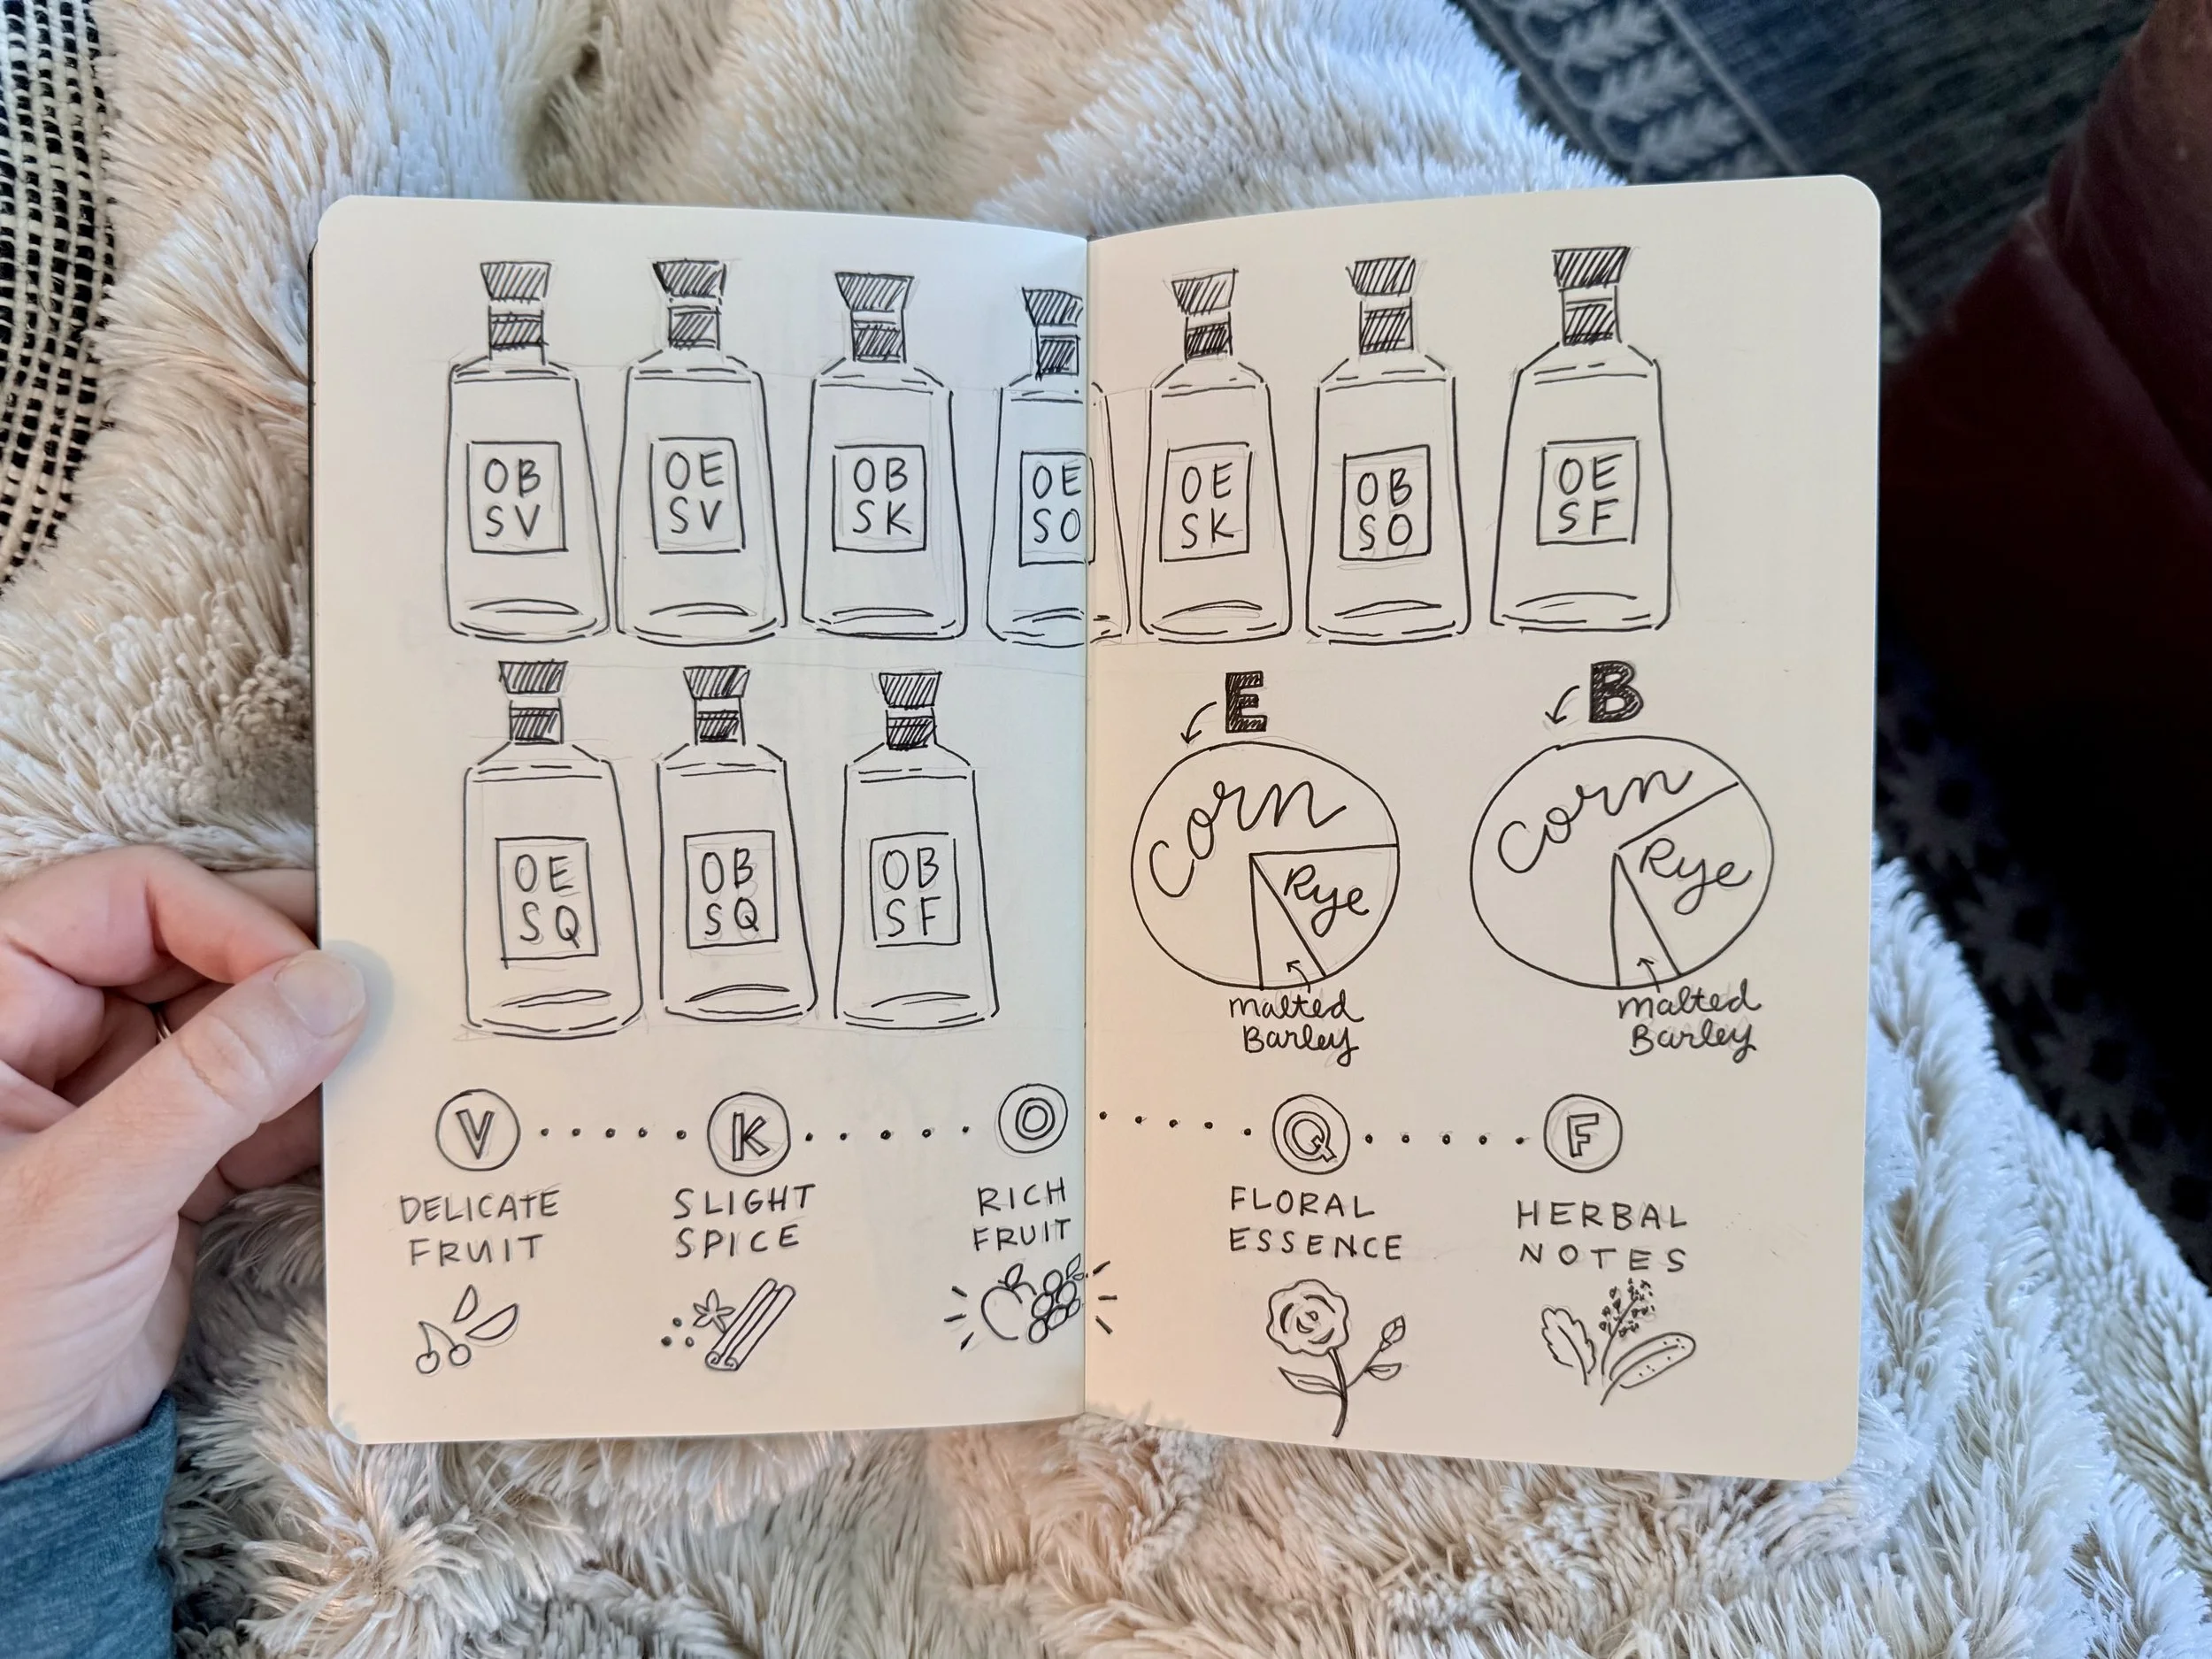 OB
SV
OE
SV
OB
SK
OE
SO
OE
SK
OB
SO
OE
SF
OE
SQ
OB
SQ
OB
SF
E
Corn
Rye
malted
Barley
B
Corn
Rye
malted
Barley
V
DELICATE
FRUIT
K
SLIGHT
SPICE
O
RICH
FRUIT
Q
FLORAL
ESSENCE
F
HERBAL
NOTES